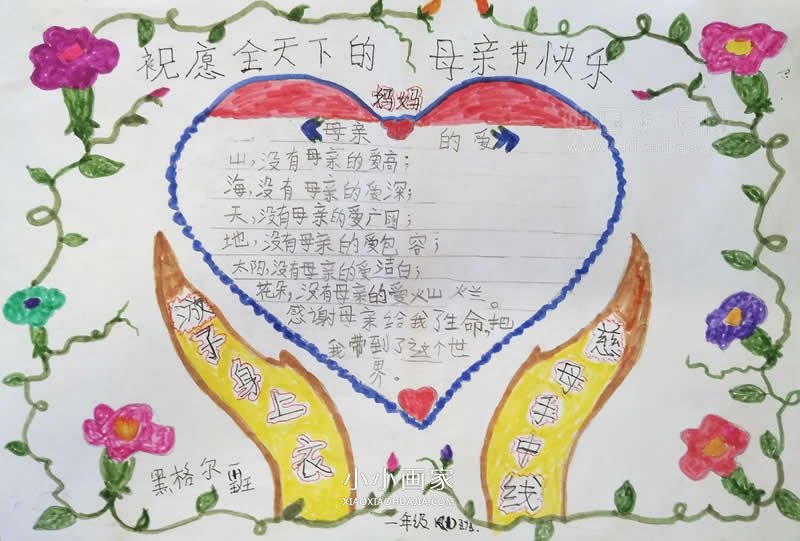 祝愿全天下的 母亲节快乐
妈妈
母亲 的爱
山，没有母亲的爱高；
海，没有母亲的爱深；
天，没有母亲的爱广阔；
地，没有母亲的爱包容；
太阳，没有母亲的爱洁白；
花朵，没有母亲的爱火山火兰。
感谢母亲给我了生命，把
我带到了这个世
界。
游子身上衣
慈母手中线
黑格尔
小小画家
XIAOXIAOHUAJIA.COM
一年级